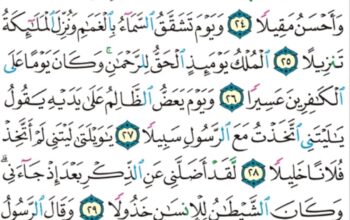 وَأَحْسَنُ مَقِيلًا ٢٤ وَيَوْمَ تَشَقَّقُ السَّمَآءُ بِالْغَمَٰمِ وَنُزِّلَ الْمَلَٰٓئِكَةُ
تَنزِيلًا ٢٥ الْمُلْكُ يَوْمَئِذٍ الْحَقُّ لِلرَّحْمَٰنِ ۚ وَكَانَ يَوْمًا عَلَى
الْكَٰفِرِينَ عَسِيرًا ٢٦ وَيَوْمَ يَعَضُّ الظَّالِمُ عَلَىٰ يَدَيْهِ يَقُولُ
يَٰلَيْتَنِى اتَّخَذْتُ مَعَ الرَّسُولِ سَبِيلًا ٢٧ يَٰوَيْلَتَىٰ لَيْتَنِى لَمْ أَتَّخِذْ
فُلَانًا خَلِيلًا ٢٨ لَّقَدْ أَضَلَّنِى عَنِ الذِّكْرِ بَعْدَ إِذْ جَآءَنِى ۗ
وَكَانَ الشَّيْطَٰنُ لِلْإِنسَٰنِ خَذُولًا ٢٩ وَقَالَ الرَّسُولُ